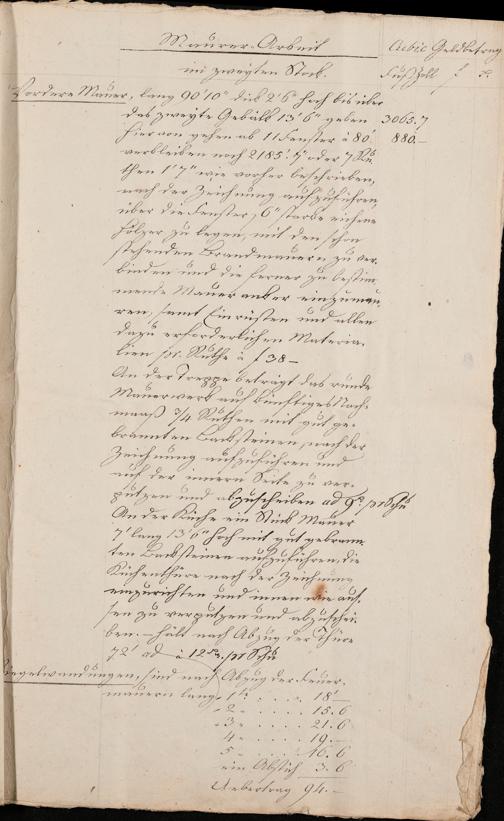 Maurer-Arbeit Cubic Geldbetrag
im zweyten Stock. Fuß Zoll f x.
Vordere Mauer, lang 90' 10" dick 2' 6" hoch bis über
das zweyte Gebälk 13' 6" geben 3065. 7
hievon gehen ab 11 Fenster à 80' 880. —
verbleiben noch 2185'. 7" oder 7 Ru-
then 1' 7" wie vorher beschrieben,
nach der Zeichnung aufzuführen,
über die Fenster, 6" starke eichene
Hölzer zu legen, mit den schon
stehenden Brandmauern zu ver-
binden und die ferner zu bestim-
mende Maueranker einzumau-
ren, samt Einrüsten und allen
dazu erforderlichen Materia-
lien pr. Ruthe à f 38 —
An der Treppe beträgt das runde
Mauerwerk auf künftiges Nach-
maaß 3/4 Ruthen mit gut ge-
brannten Backsteinen, nach der
Zeichnung aufzuführen und
auf der innern Seite zu ver-
putzen und abzuscheiben ad 9 x. pr Schu
An der Küche ein Stück Mauer
7' lang 13' 6" hoch mit gut gebrann-
ten Backsteinen aufzuführen, die
Küchenthüre nach der Zeichnung
einzurichten und innen wie aus-
sen zu verputzen und abzuschei-
ben. — hält nach Abzug der Thüre
72' ad à 12 x. pr Schu
Riegelwandungen, sind nach Abzug der Feuer-
mauern lang, 1te . . . . 18'
" 2 " . . . . 15. 6
" 3 " . . . . 21. 6
4 " . . . . 19. —
5 " . . . . 16. 6
ein Abstich 3. 6
Uebertrag 94. —